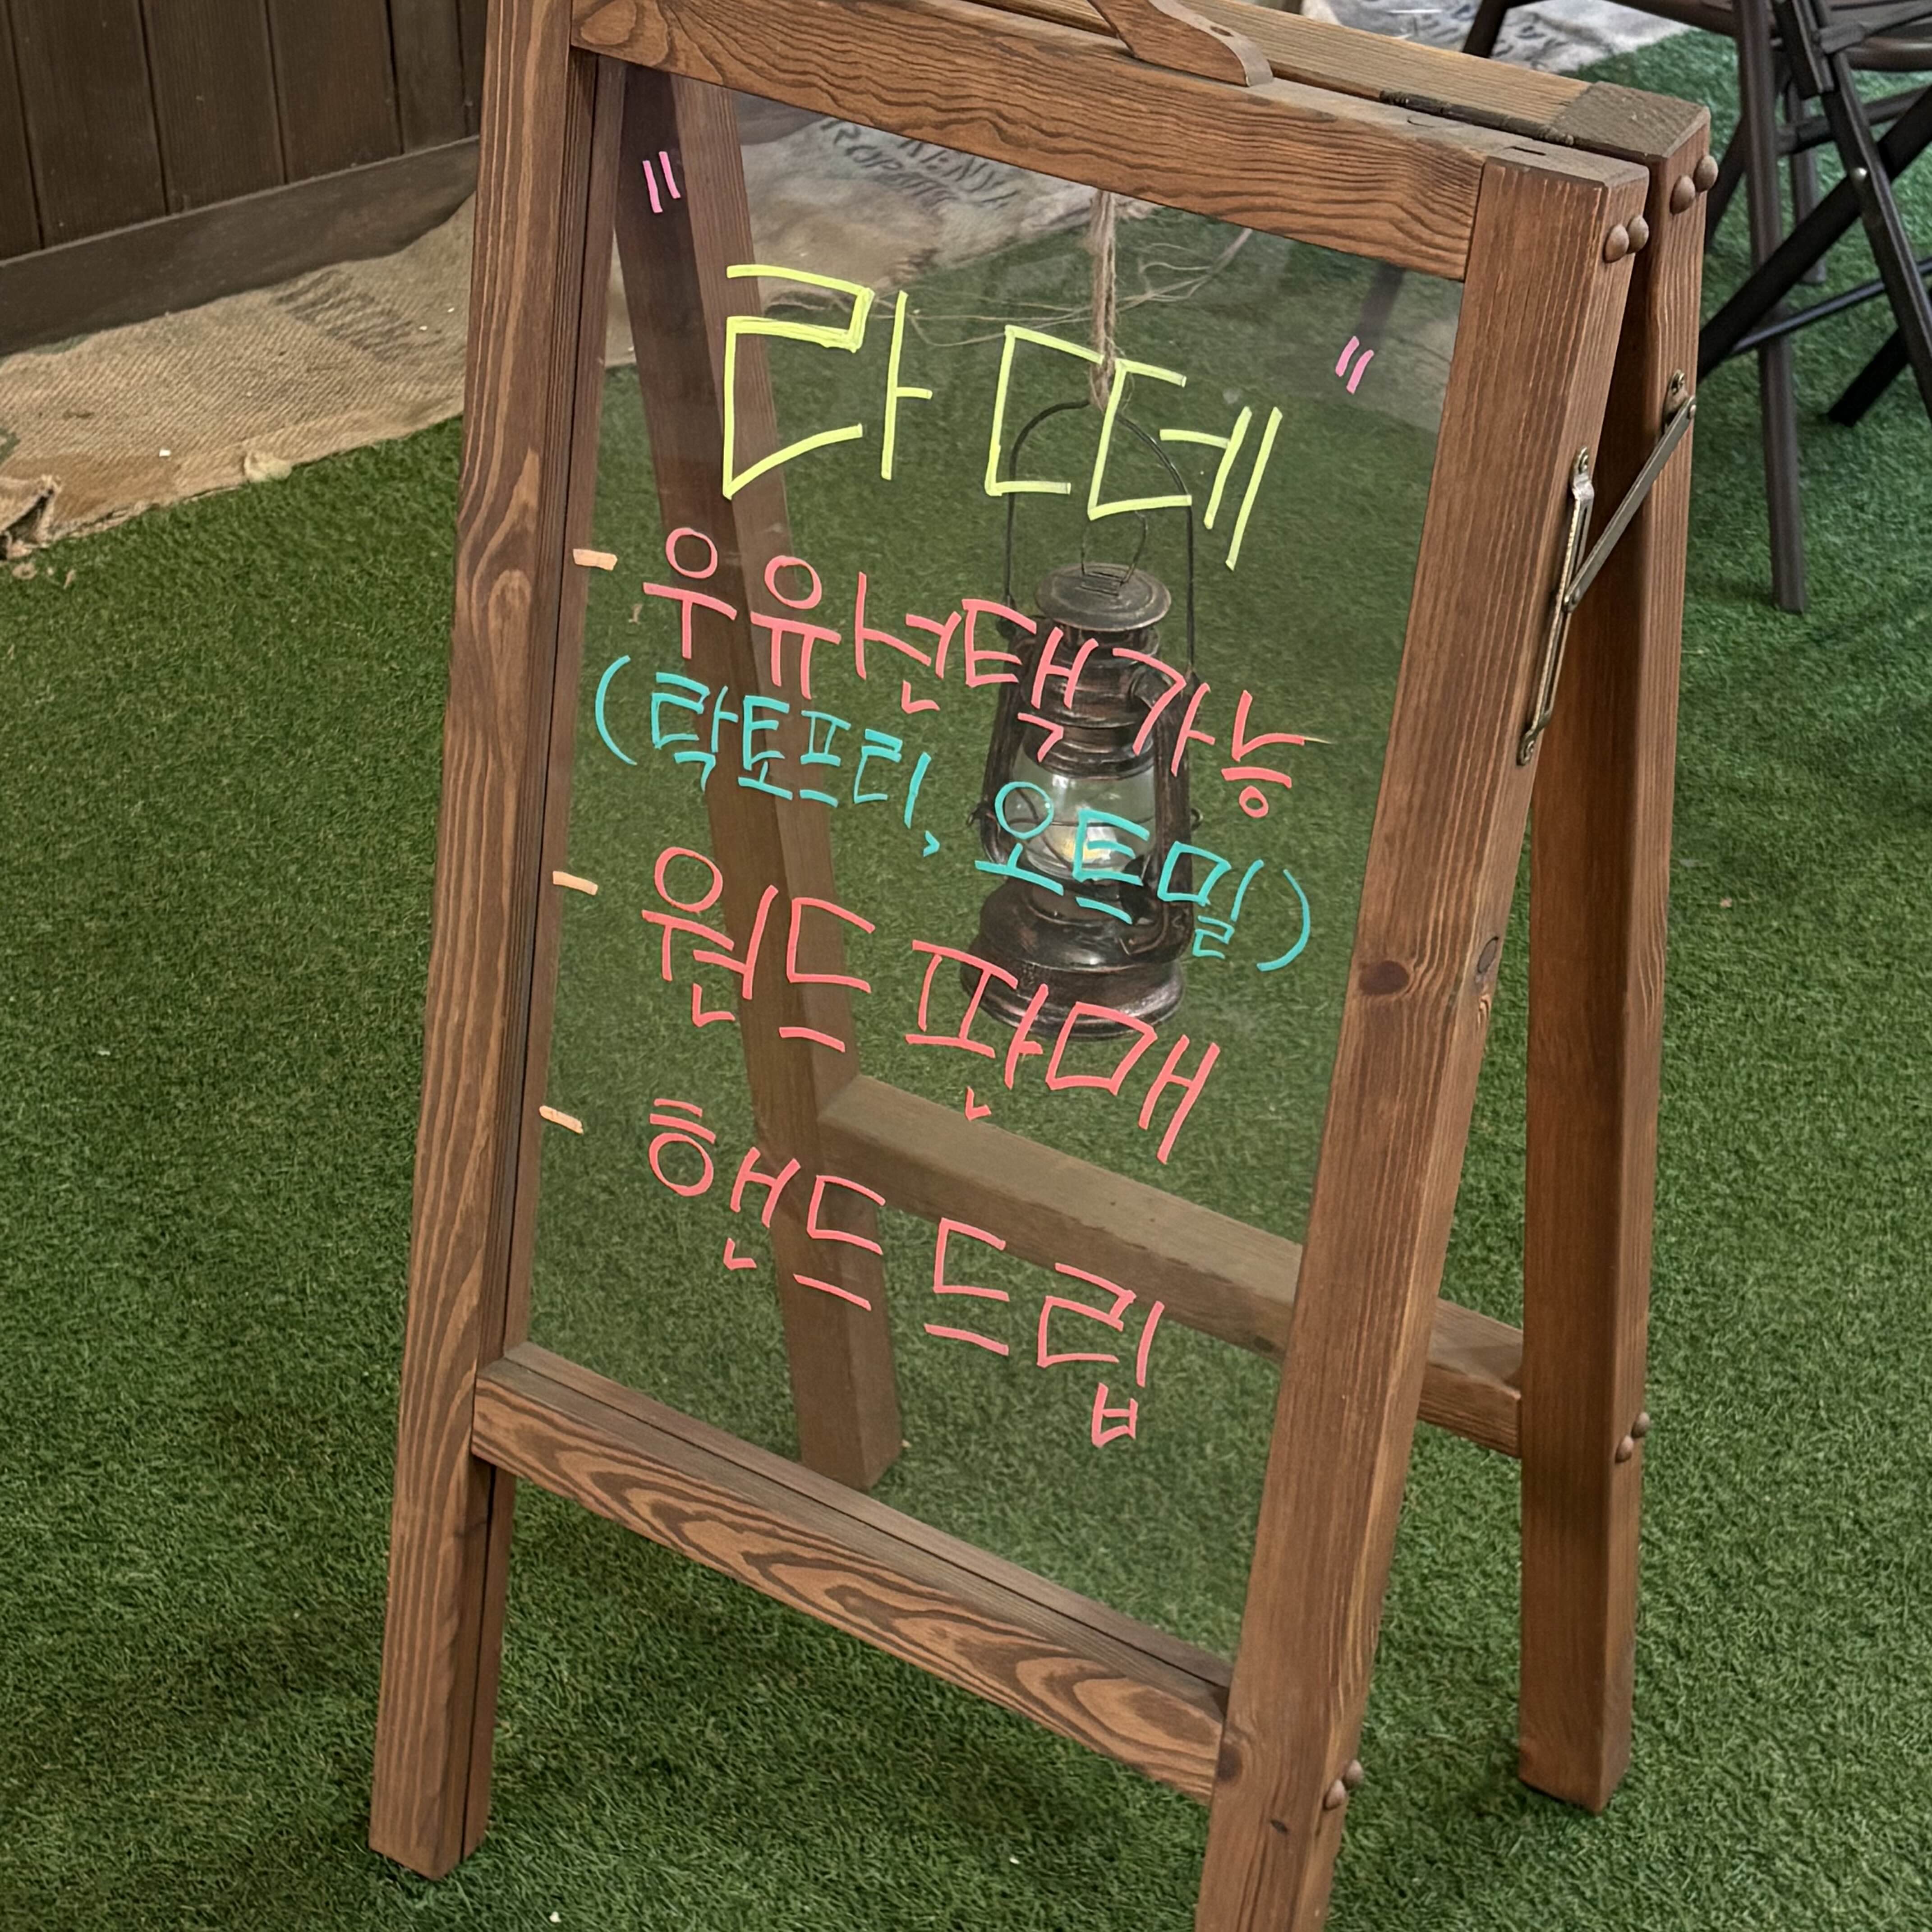 " 라떼 "
- 우유선택가능
(락토프리, 오트밀)
- 원드 판매
- 핸드 드립
KENYA